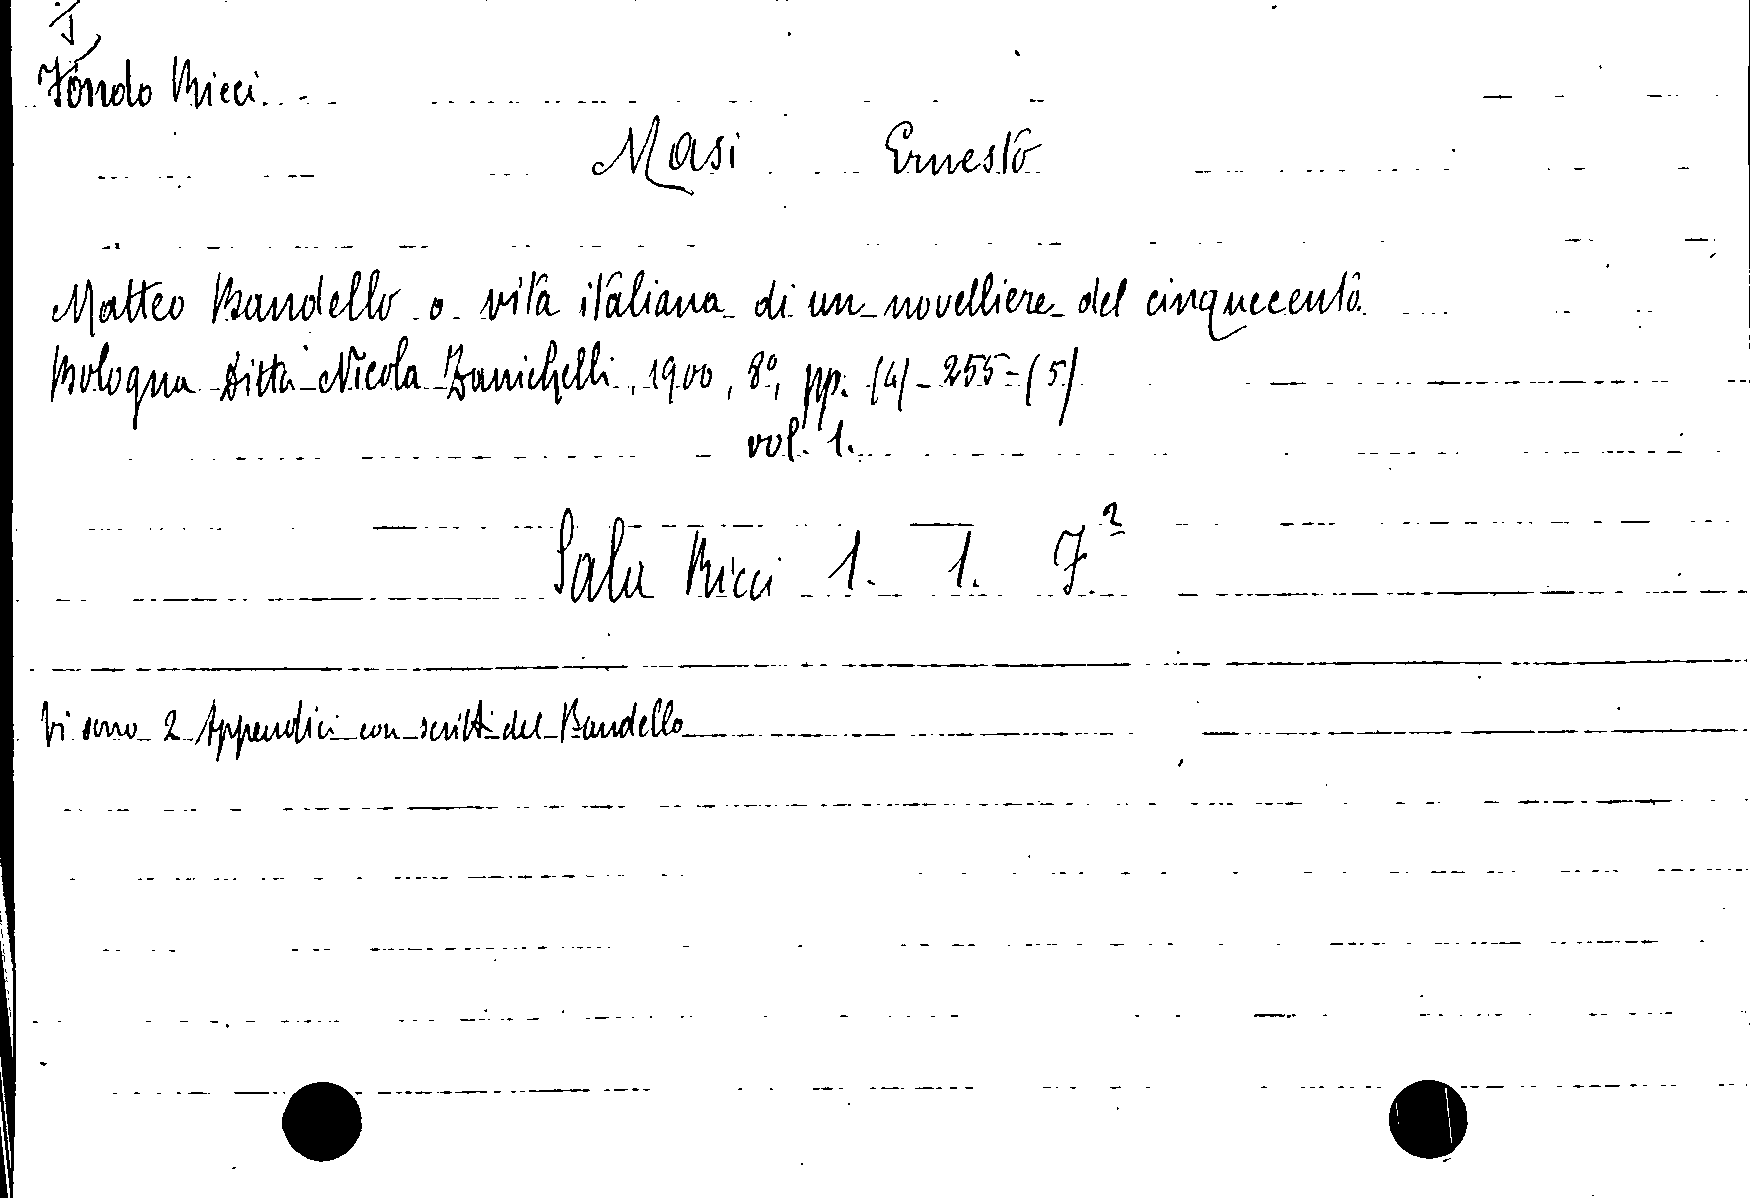 Fondo Ricci
Masi Ernesto
Matteo Bandello o vita italiana di un novelliere del cinquecento.
Bologna Ditta Nicola Zanichelli, 1900, 8º, pp. (4) - 255 - (5)
vol. 1.
Sala Ricci 1. 1. F.²
Vi sono 2 Appendici con scritti del Bandello